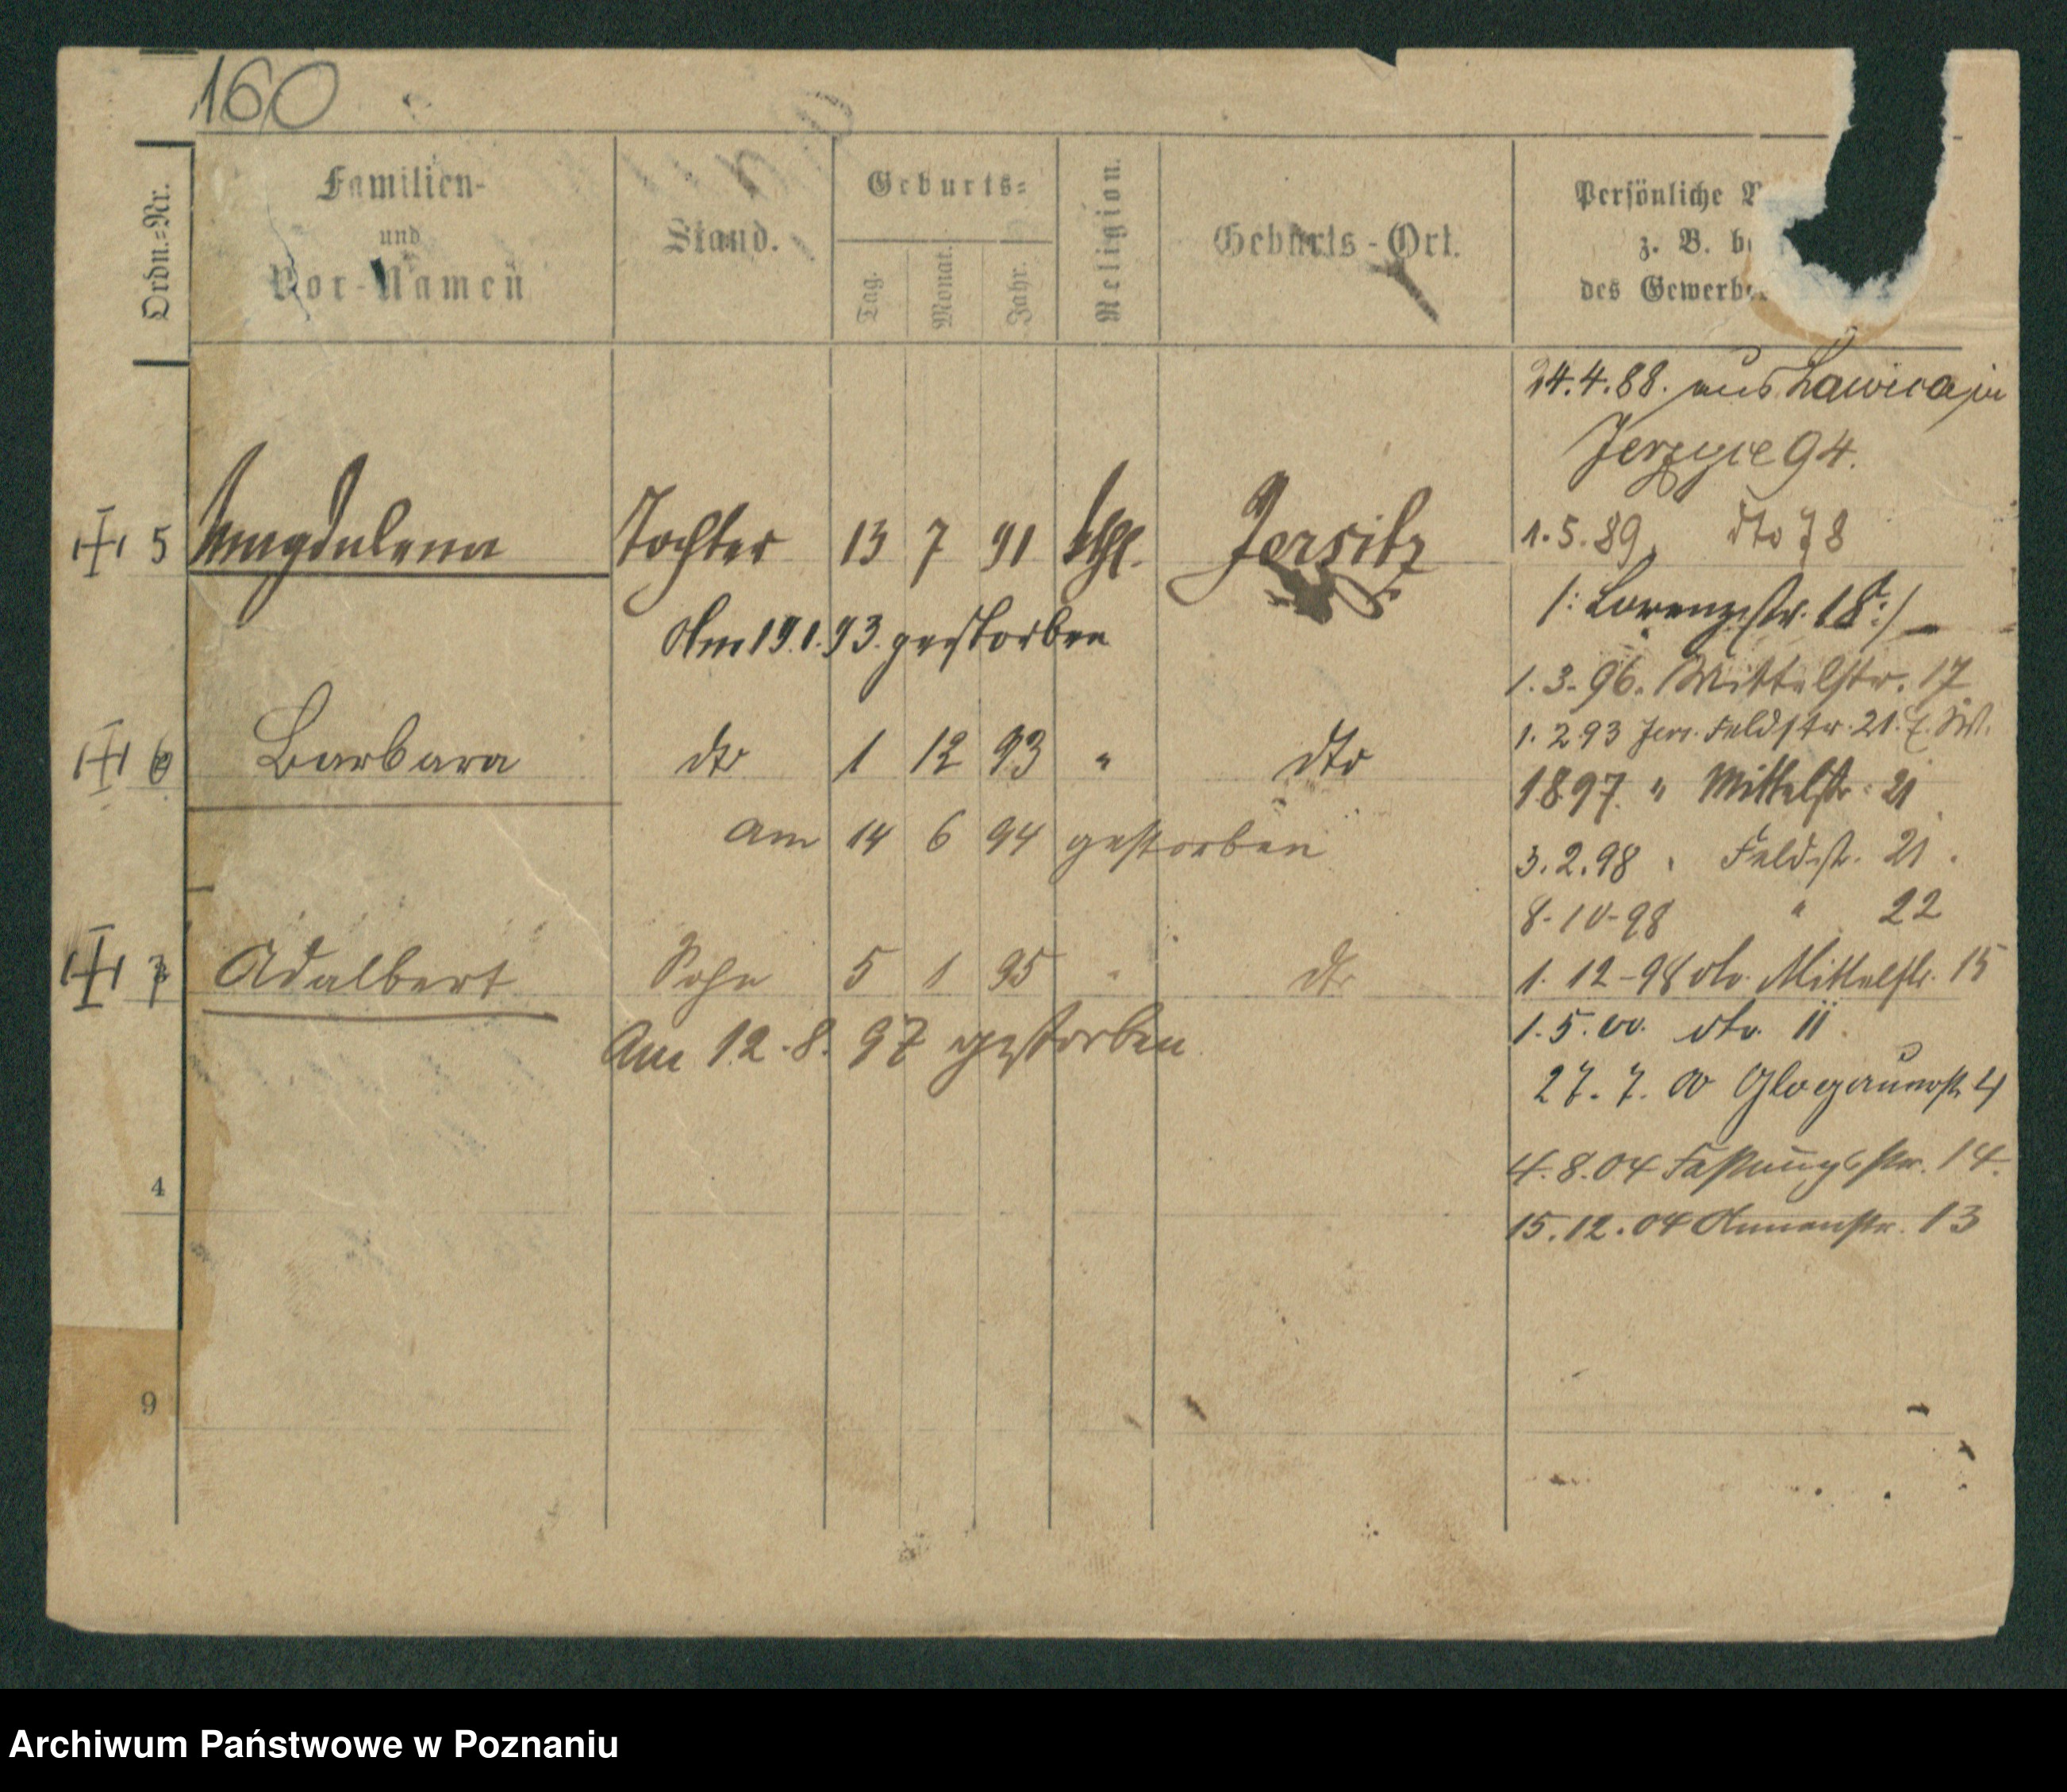 160
Ordn.-Nr.
Familien-
und
Vor-Namen
Stand.
Geburts-
Tag.
Monat.
Jahr.
Religion.
Geburts-Ort.
Persönliche
z. B.
des Gewerbe
24.4.88. aus Lawica in
Jerzyce 94.
5 Magdalena Tochter 13 7 91 kthl. Jersitz
1.5.89. dto 78
Am 19.1.93. gestorben
/: Lorenzstr. 18 :/
1.3.96. Mittelstr. 17
6 Barbara dto 1 12 93 " dto
1.2.93 Jers. Feldstr. 21.
1897. " Mittelstr. 21
am 14 6 94 gestorben
3.2.98 " Feldstr. 21.
8-10-98 " 22
7 Adalbert Sohn 5 1 95 " dto
1.12-98 dto. Mittelstr. 15
Am 12.8.97 gestorben
1.5.00. dto. 11.
27.7.00 Glogauerstr. 4
4.8.04 Festungsstr. 14.
4
15.12.04 Annenstr. 13
9
Archiwum Państwowe w Poznaniu